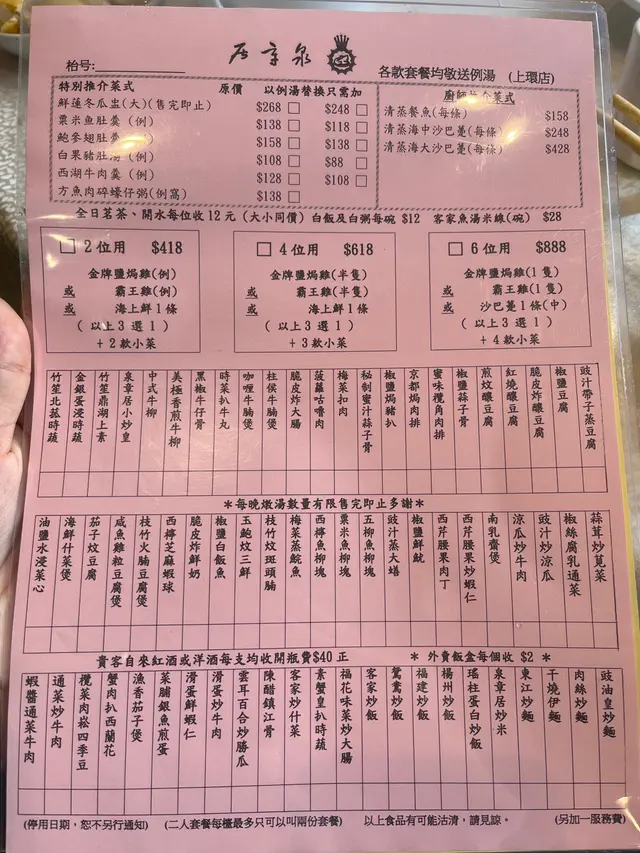 枱号:
居章泉
各款套餐均敬送例湯 (上環店)
特別推介菜式 原價 以例湯替換只需加
鮮蓮冬瓜盅(大)(售完即止) $268 □ $248 □
粟米魚肚羹 (例) $138 □ $118 □
鮑參翅肚羹 $158 □ $138 □
白果豬肚湯 (例) $108 □ $88 □
西湖牛肉羹 (例) $128 □ $108 □
方魚肉碎蠔仔粥(例窩) $138 □
廚師推介菜式
清蒸餐魚(每條) $158
清蒸海中沙巴躉(每條) $248
清蒸海大沙巴躉(每條) $428
全日茗茶、開水每位收12元 (大小同價) 白飯及白粥每碗 $12 客家魚湯米線(碗) $28
□ 2位用 $418
金牌鹽焗雞(例)
或 霸王雞(例)
或 海上鮮1條
( 以上3選1 )
+ 2款小菜
□ 4位用 $618
金牌鹽焗雞(半隻)
或 霸王雞(半隻)
或 海上鮮1條
( 以上3選1 )
+ 3款小菜
□ 6位用 $888
金牌鹽焗雞(1隻)
或 霸王雞(1隻)
或 沙巴躉1條(中)
( 以上3選1 )
+ 4款小菜
豉汁帶子蒸豆腐
椒鹽豆腐
脆皮炸釀豆腐
紅燒釀豆腐
煎炆釀豆腐
椒鹽蒜子骨
蜜味欖角肉排
京都焗肉排
椒鹽焗豬扒
秘制蜜汁蒜子骨
梅菜扣肉
菠蘿咕嚕肉
脆皮炸大腸
柱侯牛腩煲
咖喱牛腩煲
時菜扒牛丸
黑椒牛仔骨
美極香煎牛柳
中式牛柳
泉章居小炒皇
竹笙鼎湖上素
金銀蛋浸時蔬
竹笙北菇時蔬
*每晚燉湯數量有限售完即止多謝*
蒜茸炒莧菜
椒絲腐乳通菜
豉汁炒涼瓜
涼瓜炒牛肉
南乳齋煲
西芹腰果炒蝦仁
西芹腰果肉丁
椒鹽鮮魷
豉汁蒸大鱔
五柳魚柳塊
粟米魚柳塊
西檸魚柳塊
梅菜蒸鯇魚
枝竹炆斑頭腩
玉鮑炆三鮮
椒鹽白飯魚
脆皮炸鮮奶
西檸芝麻蝦球
枝竹火腩豆腐煲
咸魚雞粒豆腐煲
茄子炆豆腐
海鮮什菜煲
油鹽水浸菜心
貴客自來紅酒或洋酒每支均收開瓶費$40 正 * 外賣飯盒每個收 $2 *
豉油皇炒麵
肉絲炒麵
干燒伊麵
東江炒麵
泉章居炒米
瑤柱蛋白炒飯
楊州炒飯
福建炒飯
鴛鴦炒飯
客家炒飯
福花味菜炒大腸
素蟹皇扒時蔬
客家炒什菜
陳醋鎮江骨
雲耳百合炒勝瓜
滑蛋炒牛肉
滑蛋鮮蝦仁
菜脯銀魚煎蛋
漁香茄子煲
蟹肉扒西蘭花
欖菜肉崧四季豆
通菜炒牛肉
蝦醬通菜牛肉
(停用日期,恕不另行通知) (二人套餐每檯最多只可以叫兩份套餐) 以上食品有可能沽清,請見諒。 (另加一服務費)